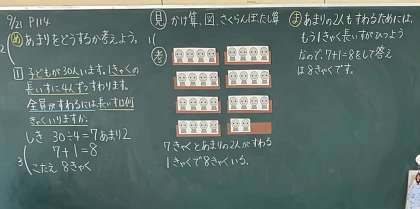 9/21 P114
め あまりをどうするか考えよう。
1 子どもが30人います。1きゃくの
長いすに4人ずつすわります。
全員がすわるには長いすは何
きゃくいりますか。
しき 30÷4=7あまり2
7+1=8
こたえ 8きゃく
見 かけ算、図、さくらんぼたし算
考
7きゃくとあまりの2人がすわる
1きゃくで8きゃくいる。
ま あまりの2人もすわるためには、
もう1きゃく長いすがひつよう
なので、7+1=8をして答え
は8きゃくです。